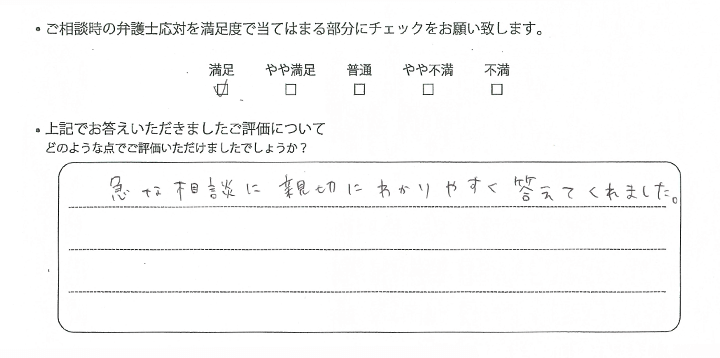 ・ご相談時の弁護士応対を満足度で当てはまる部分にチェックをお願い致します。
満足 やや満足 普通 やや不満 不満
☑ □ □ □ □
・上記でお答えいただきましたご評価について
どのような点でご評価いただけましたでしょうか？
急な相談に親切にわかりやすく答えてくれました。